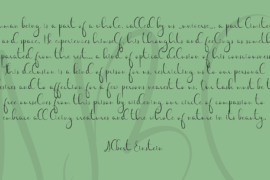 being is a part of a whole, called by us _universe_, a part limited
and space. He experiences himself, his thoughts and feelings as
from the rest... a kind of optical delusion of his consciousness.
delusion is a kind of prison for us, restricting us to our personal
and to affection for a few persons nearest to us. Our task must be
free ourselves from this prison by widening our circle of compassion to
embrace all living creatures and the whole of nature in its beauty.
Albert Einstein